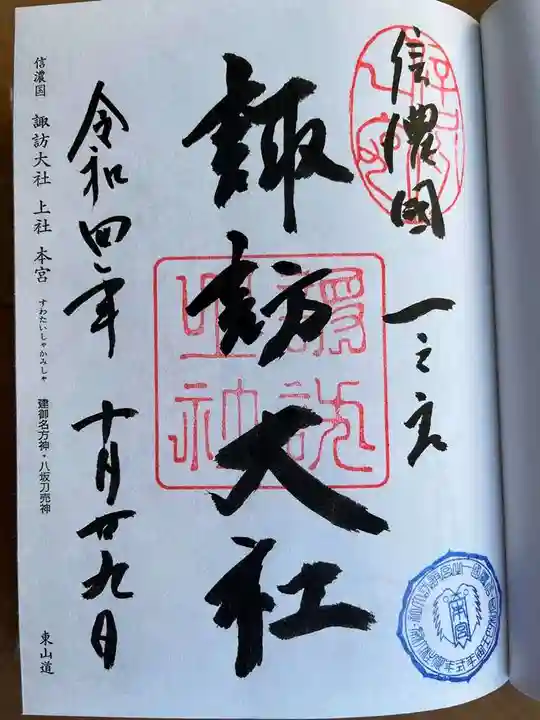 信濃國
一之宮
諏訪大社
諏訪
之神
令和四年 十月廿九日
信濃国 諏訪大社 上社 本宮 すわたいしゃかみしゃ 建御名方神・八坂刀売神 東山道
本宮